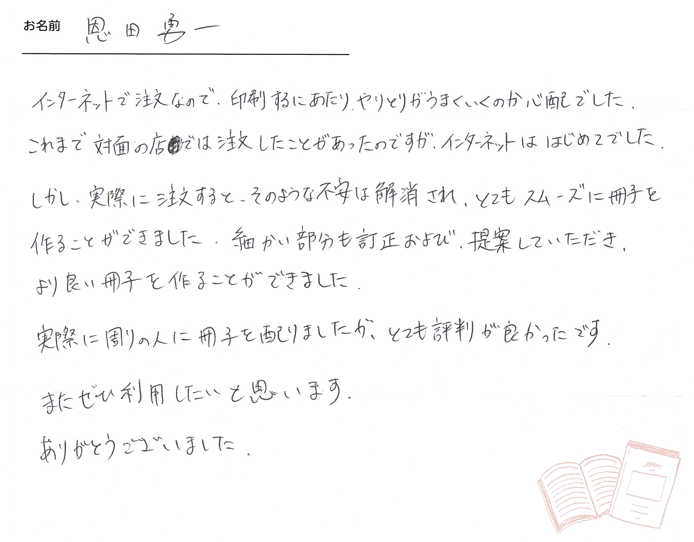 お名前 恩田勇一
インターネットで注文なので、印刷するにあたり、やりとりがうまくいくのか心配でした。
これまで対面の店では注文したことがあったのですが、インターネットははじめてでした。
しかし、実際に注文すると、そのような不安は解消され、とてもスムーズに冊子を
作ることができました。細かい部分も訂正および、提案していただき、
より良い冊子を作ることができました。
実際に周りの人に冊子を配りましたが、とても評判が良かったです。
またぜひ利用したいと思います。
ありがとうございました。